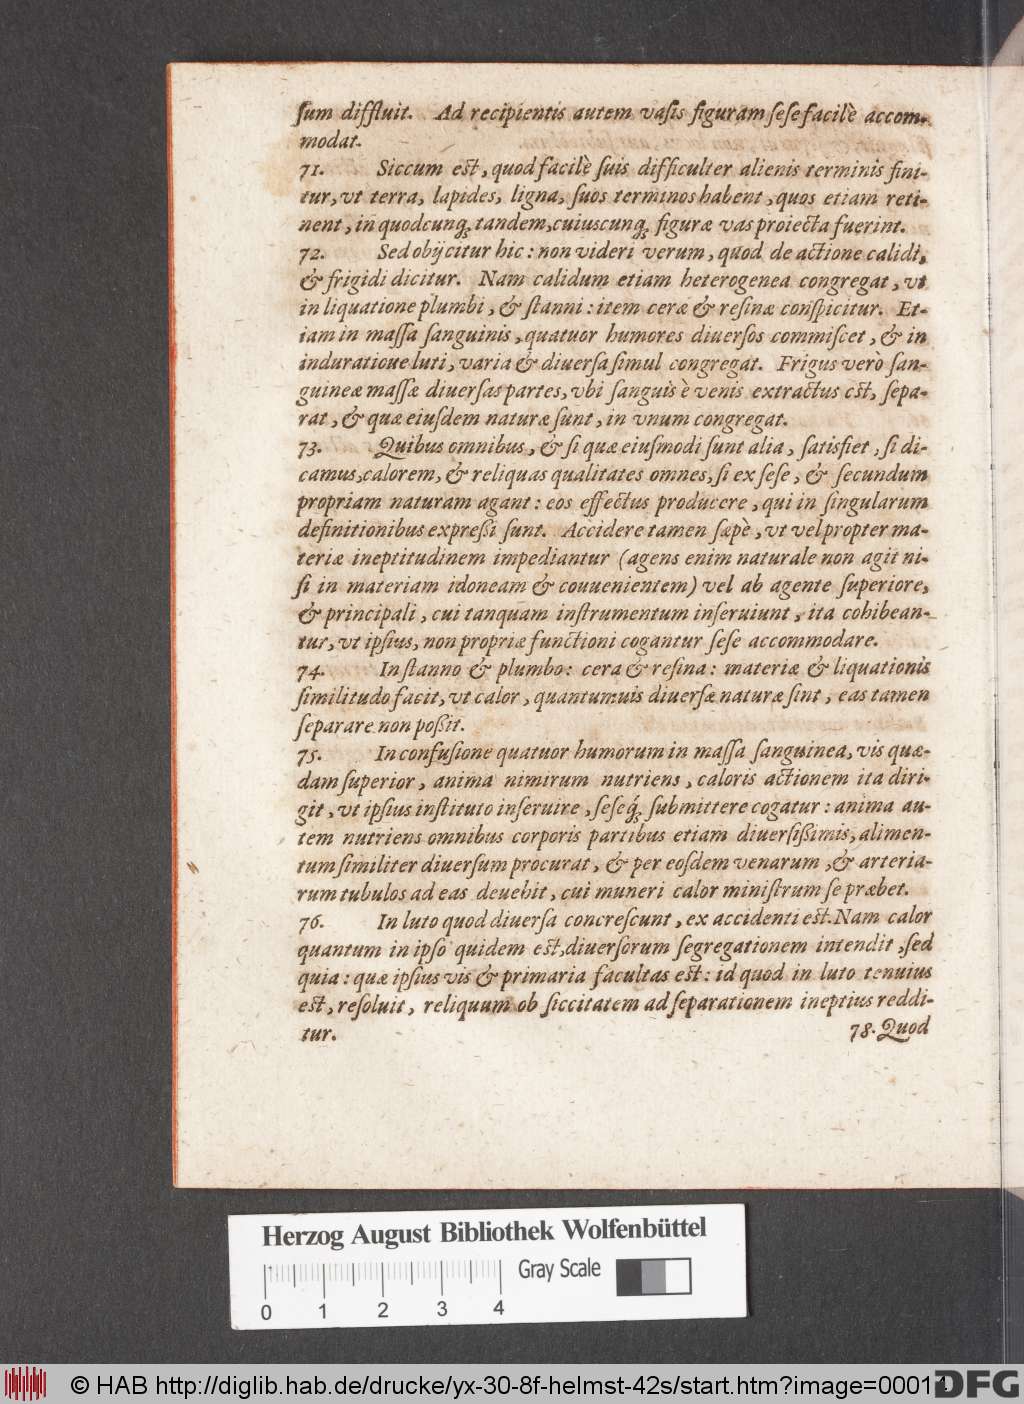 ſum diffluit. Ad recipientis autem vaſis figuram ſeſe facilè accom-
modat.
71. Siccum est, quod facilè ſuis difficulter alienis terminis fini-
tur, vt terra, lapides, ligna, ſuos terminos habent, quos etiam reti-
nent, in quodcunq; tandem, cuiuscunq; figuræ vas proiecta fuerint.
72. Sed obijcitur hic: non videri verum, quod de actione calidi,
& frigidi dicitur. Nam calidum etiam heterogenea congregat, vt
in liquatione plumbi, & ſtanni: item ceræ & reſinæ conſpicitur. Et-
iam in maſſa ſanguinis, quatuor humores diuerſos commiſcet, & in
induratioue luti, varia & diuerſa ſimul congregat. Frigus verò ſan-
guineæ maſſæ diuerſas partes, vbi ſanguis è venis extractus est, ſepa-
rat, & quæ eiuſdem naturæ ſunt, in vnum congregat.
73. Quibus omnibus, & ſi quæ eiuſmodi ſunt alia, ſatisfiet, ſi di-
camus, calorem, & reliquas qualitates omnes, ſi ex ſeſe, & ſecundum
propriam naturam agant: eos effectus producere, qui in ſingularum
definitionibus expreßi ſunt. Accidere tamen ſæpè, vt vel propter ma-
teriæ ineptitudinem impediantur (agens enim naturale non agit ni-
ſi in materiam idoneam & couuenientem) vel ab agente ſuperiore,
& principali, cui tanquam inſtrumentum inſeruiunt, ita cohibean-
tur, vt ipſius, non propriæ functioni cogantur ſeſe accommodare.
74. In ſtanno & plumbo: cera & reſina: materiæ & liquationis
ſimilitudo facit, vt calor, quantumuis diuerſæ naturæ ſint, eas tamen
ſeparare non poßit.
75. In confuſione quatuor humorum in maſſa ſanguinea, vis quæ-
dam ſuperior, anima nimirum nutriens, caloris actionem ita diri-
git, vt ipſius inſtituto inſeruire, ſeſeq́; ſubmittere cogatur: anima au-
tem nutriens omnibus corporis partibus etiam diuerſißimis, alimen-
tum ſimiliter diuerſum procurat, & per eoſdem venarum, & arteria-
rum tubulos ad eas deuehit, cui muneri calor miniſtrum ſe præbet.
76. In luto quod diuerſa concreſcunt, ex accidenti est. Nam calor
quantum in ipſo quidem est, diuerſorum ſegregationem intendit, ſed
quia: quæ ipſius vis & primaria facultas est: id quod in luto tenuius
est, reſoluit, reliquum ob ſiccitatem ad ſeparationem ineptius reddi-
tur. 78. Quod
Herzog August Bibliothek Wolfenbüttel
Gray Scale
0 1 2 3 4
© HAB http://diglib.hab.de/drucke/yx-30-8f-helmst-42s/start.htm?image=00014
DFG